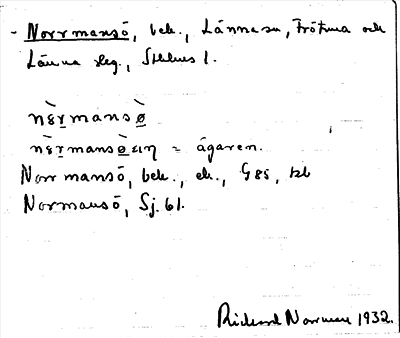 - Norrmansö, bek., Länna sn, Frötuna och
Länna slg., Sthlms l.
nɛ̀rmansø̀
nɛ̀rmansø̀ɛıɳ = ägaren.
Norrmansö, bek., ek., G85, tbl
Normansö, Sj. 61.
Rickard Norrman 1932.